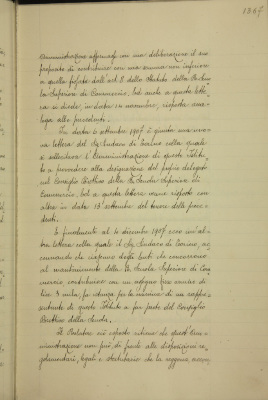 1367
Amministrazione affermasse con una deliberazione il suo
proposito di contribuire con una somma non inferiore
a quella fissata dall'art. 8 dello Statuto della R. Scuo
la Superiore di Commercio, ed anche a questa lette
ra si diede, in data novembre, risposta ana-
loga alle precedenti.
In data 6 settembre 1907 è giunta una nuova
lettera del Sig. Sindaco di Torino colla quale
si sollecitava l'Amministrazione di questo Istitu-
to a provvedere alla designazione del proprio delegato
nel Consiglio Direttivo della R. Scuola Superiore di
Commercio, ed a questa lettera venne risposto con
altra in data 13 settembre del tenore delle prece-
denti.
E finalmente al 10 dicembre 1907 ecco un'al-
tra lettera colla quale il Sig. Sindaco di Torino, ac
cennando che ciascuno degli Enti che concorrono
al mantenimento della R. Scuola Superiore di Com
mercio contribuisce con un assegno fisso annuo di
lire 3 mila, fa istanza per la nomina di un rappre-
sentante di questo Istituto a far parte del Consiglio
Direttivo della Scuola.
Il Relatore ciò esposto ritiene che quest'Am-
ministrazione non può, di fronte alle disposizioni re-
golamentari, legali e statutarie che la reggono